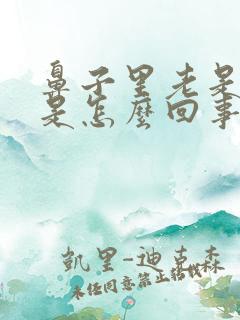 鼻子里老是
是怎麼回事
凱里-迪克森
未经同意禁止转载